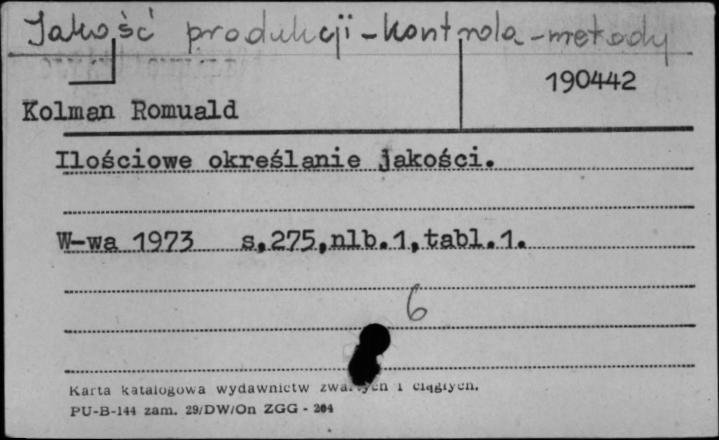 Jakość produkcji - kontrola - metody
190442
Kolman Romuald
Ilościowe określanie jakości.
W-wa 1973 s.275,nlb.1,tabl.1.
6
Karta katalogowa wydawnictw zwartych i ciągłych.
PU-B-144 zam. 29/DW/On ZGG - 204